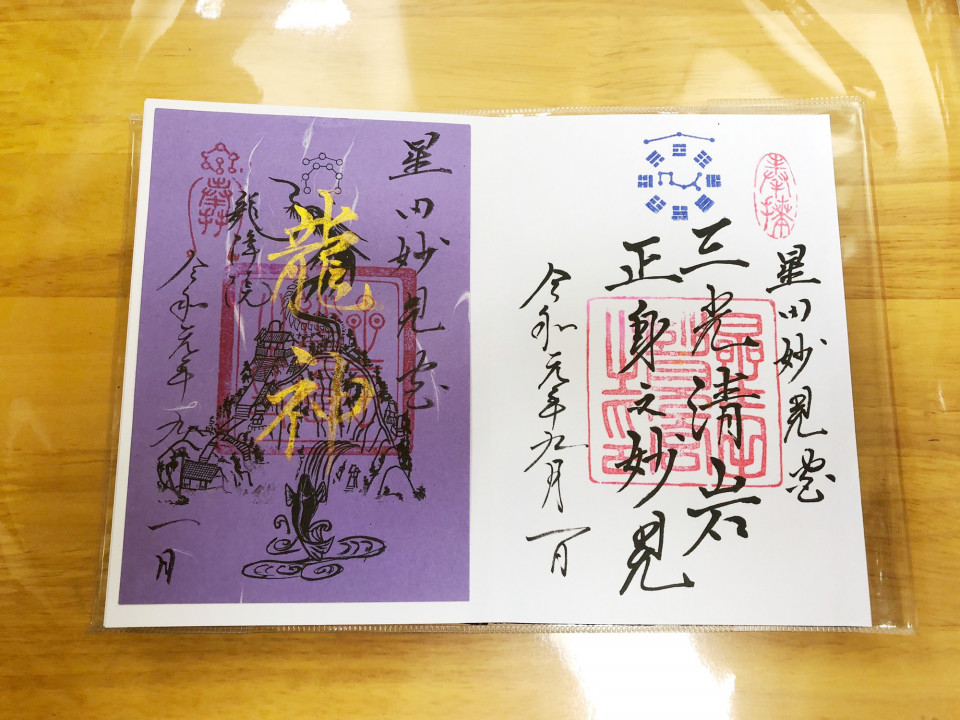 奉拝
星田妙見宮
三光清岩
正身之妙見
令和元年九月一日
星田妙見宮
龍神
龍降院
奉拝
令和元年九月一日